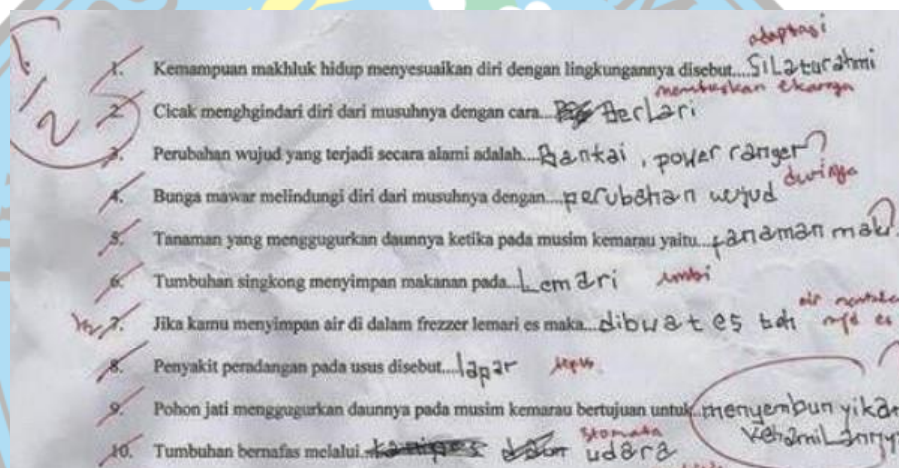 1/2
adaptasi
1. Kemampuan makhluk hidup menyesuaikan diri dengan lingkungannya disebut....Silaturahmi
memutuskan ekornya
2. Cicak menghgindari diri dari musuhnya dengan cara... Berlari
3. Perubahan wujud yang terjadi secara alami adalah....Bankai, power ranger ?
durinya
4. Bunga mawar melindungi diri dari musuhnya dengan....perubahan wujud
5. Tanaman yang menggugurkan daunnya ketika pada musim kemarau yaitu...tanaman
6. Tumbuhan singkong menyimpan makanan pada...Lemari umbi
air
1/2 7. Jika kamu menyimpan air di dalam frezzer lemari es maka....dibuat es es
8. Penyakit peradangan pada usus disebut....lapar
9. Pohon jati menggugurkan daunnya pada musim kemarau bertujuan untuk..menyembunyikan
kehamilannya
stomata
10. Tumbuhan bernafas melalui. udara